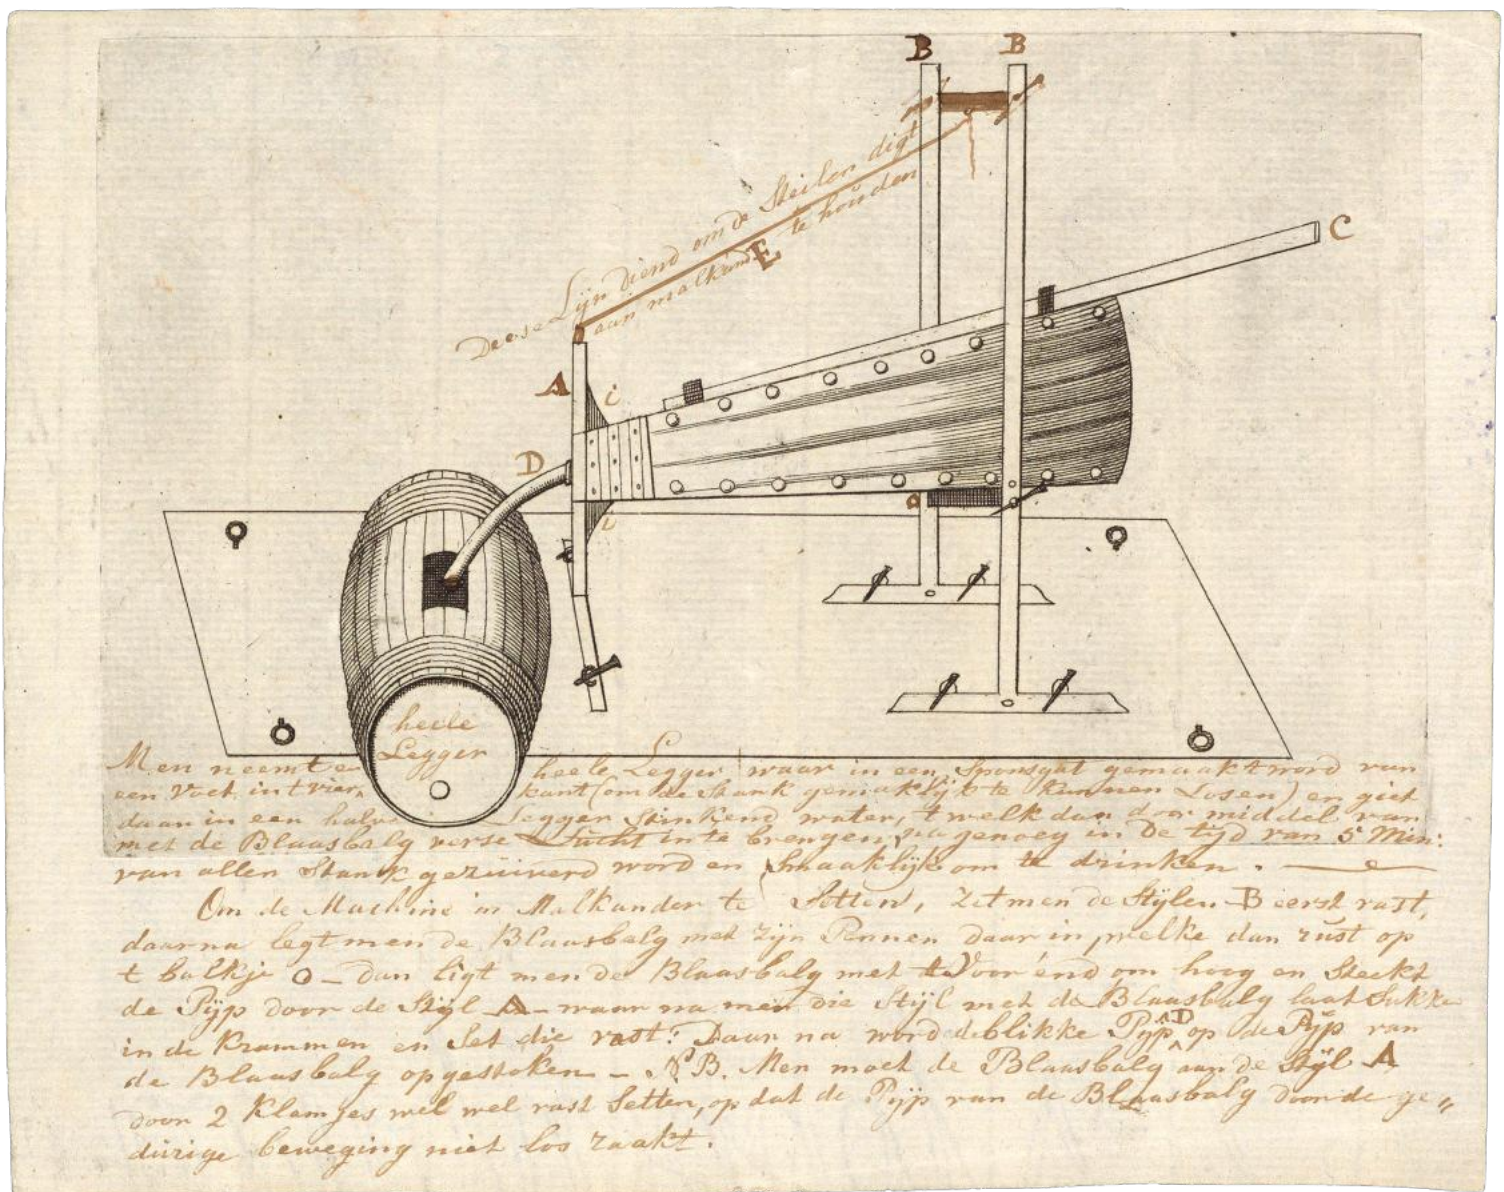 B B
C
Deese Lijn diend om de Steilen digt
aan malkand te houden
E
A i
D
o
i
heele
Legger
Men neemt een heele Legger waar in een Sponsgat gemaakt word van
een Voet in t vier kant (om de Stank gemaklijk te kunnen Losen) en giet
daar in een halve Legger Stinkend water, t welk dan door middel van
met de Blaasbalg verse Lucht in te brengen, genoeg in De tijd van 5 Min:
van allen Stank gezuiverd word en Smaaklijk om te drinken.
Om de Machine in Malkander te Setten, Zet men de Stijlen B eerst vast,
daarna legt men de Blaasbalg met zijn Pennen daar in, welke dan rust op
t balkje O - Dan ligt men de Blaasbalg met Voor end om hoog en Steekt
de Pijp door de Stijl A - waar na men die Stijl met de Blaasbalg laat Sakke
in de Krammen en Set die vast: Daar na word de blikke Pijp D op de Pijp van
de Blaasbalg opgestoken - NB. Men moet de Blaasbalg aan de Stijl A
door 2 Klamjes wel wel vast Setten, op dat de Pijp van de Blaasbalg door de ge„
durige beweging niet los raakt.